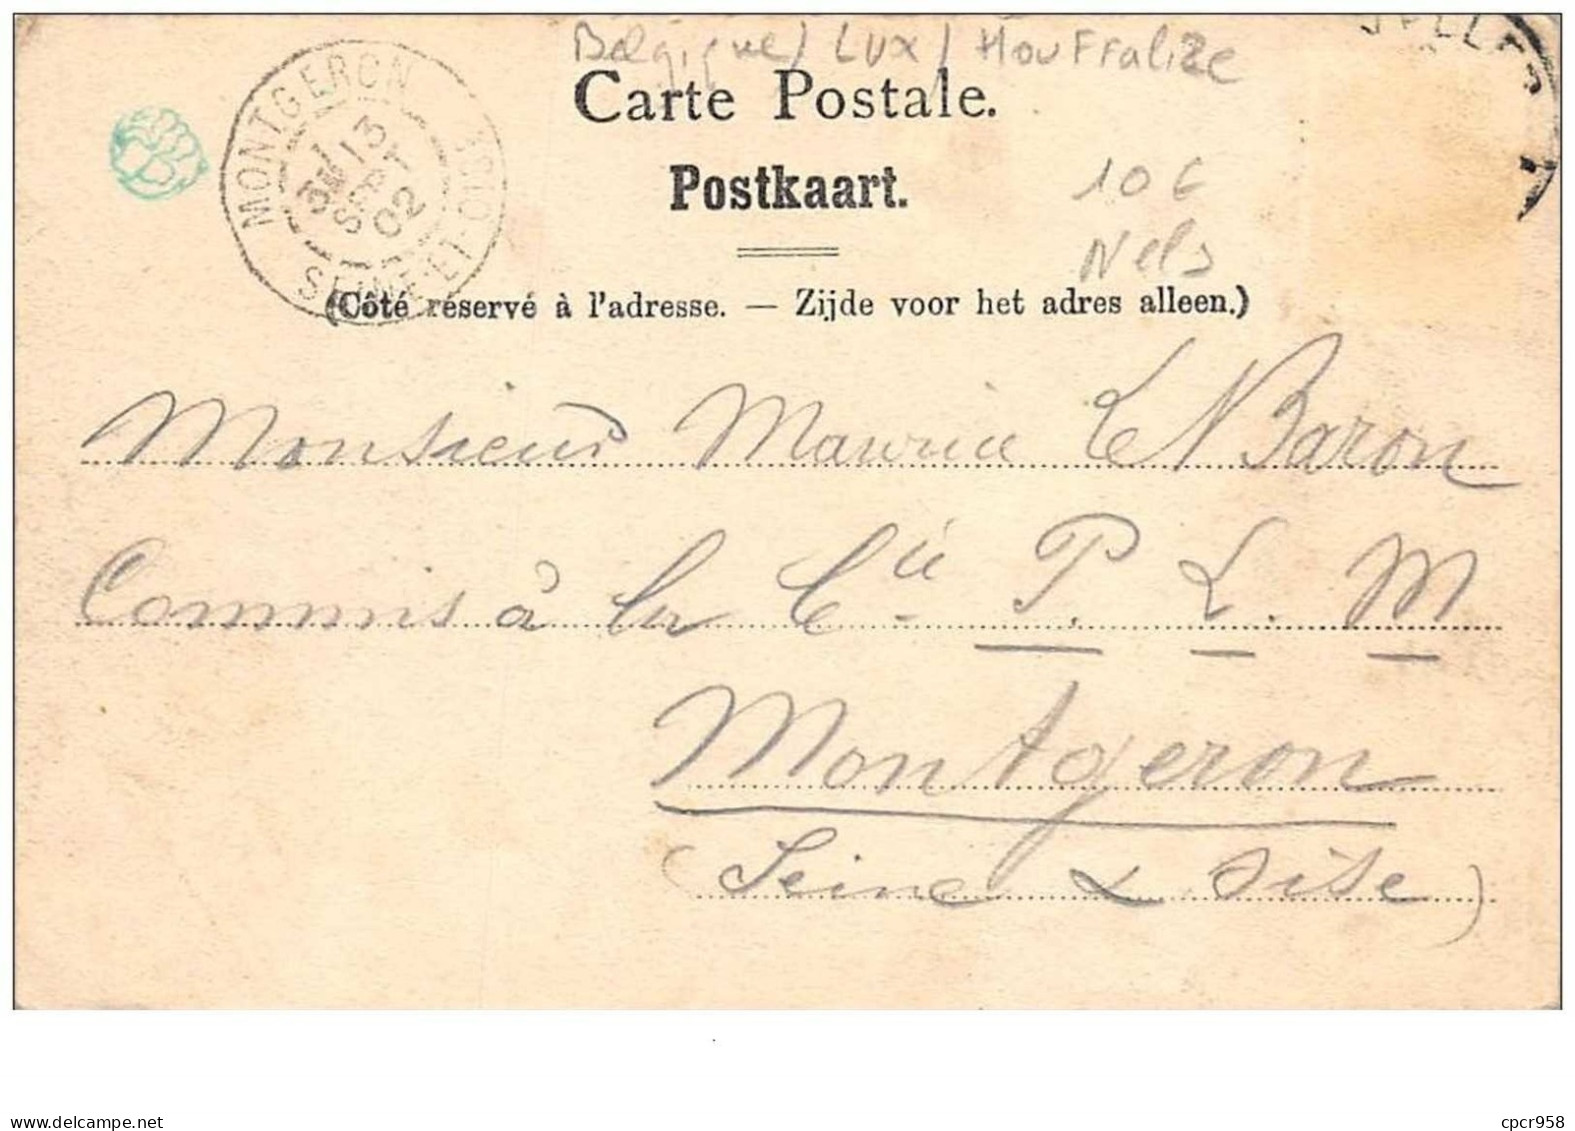 Belgique / Lux / Houffalize
Carte Postale.
Postkaart.
10 €
Nels
(Côté réservé à l'adresse. — Zijde voor het adres alleen.)
MONTGERON
13
SEPT
02
SEINE-ET-OISE
Monsieur Maurice Le Baron
Commis à la Cie P. L. M
Montgeron
(Seine & Oise)
www.delcampe.net
cpcr958